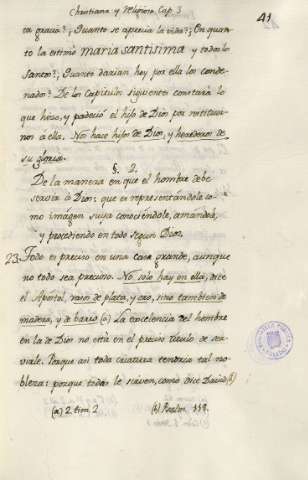 Christiana y Religiosa. Cap. 3
41
ta gracia? ¿Quanto se aprecia la vida? ¿En quan-
to la estimó maria santisima y todos los
Santos? ¿Quanto darian hoy por ella los conde-
nados? De los Capitulos siguientes constará lo
que hizo, y padeció el hijo de Dios por restituir-
nos a ella. Nos hace hijos de Dios, y herederos de
su gloria.
§. 2.
De la manera en que el hombre debe
servir à Dios: que es representandole co-
mo imagen suya conociendole, amandole,
y procediendo en todo segun Dios.
23. Todo es preciso en una casa grande, aunque
no todo sea precioso. No solo hay en ella, dice
el Apostol, vasos de plata, y oro, sino tambien de
madera, y de barro (a) La excelencia del hombre
en la de Dios no está en el preciso titulo de ser-
virle. Porque asi toda criatura tendria tal no-
bleza: porque todas le sirven, como dice David (b)
(a) 2. tim. 2. (b) Psalm. 118.